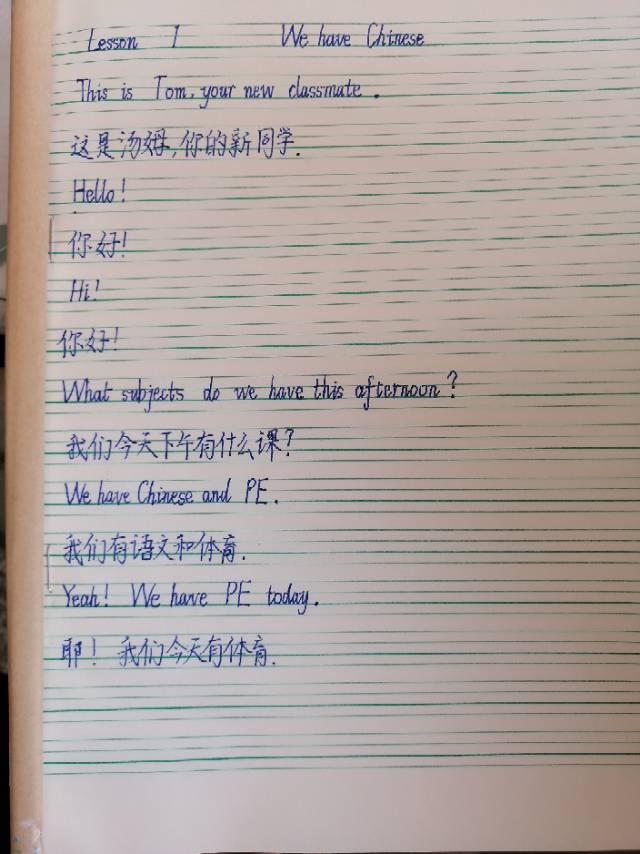 Lesson 1 We have Chinese
This is Tom, your new classmate.
这是汤姆,你的新同学.
Hello!
你好!
Hi!
你好!
What subjects do we have this afternoon?
我们今天下午有什么课?
We have Chinese and PE.
我们有语文和体育.
Yeah! We have PE today.
耶! 我们今天有体育.